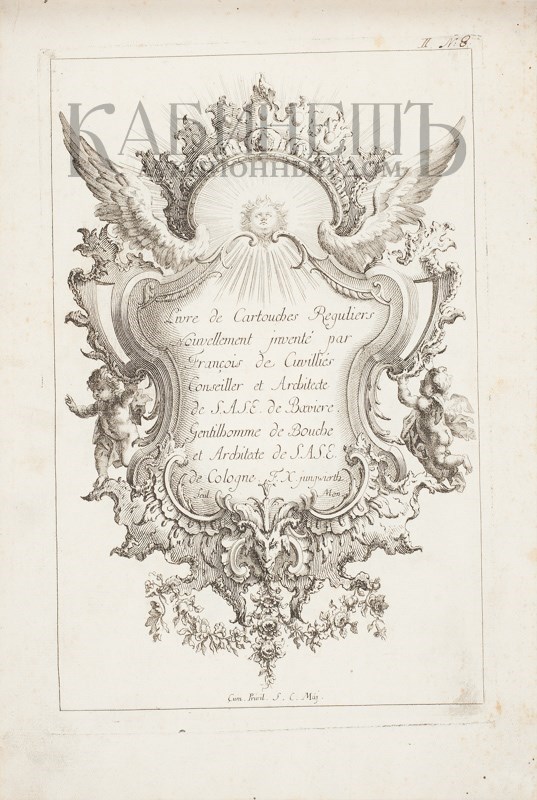 II. N 8
КАБИНЕТЪ
АУКЦИОННЫЙ ДОМ
Livre de Cartouches Reguliers
Nouvellement jnventé par
François de Cuvilliés
Conseiller et Architecte
de S.A.S.E. de Baviere.
Gentilhomme de Bouche
et Architecte de S.A.S.E.
de Cologne. F. X. jungwierth
Sculp. Mon.
Cum. Privil. S. C. Maj.